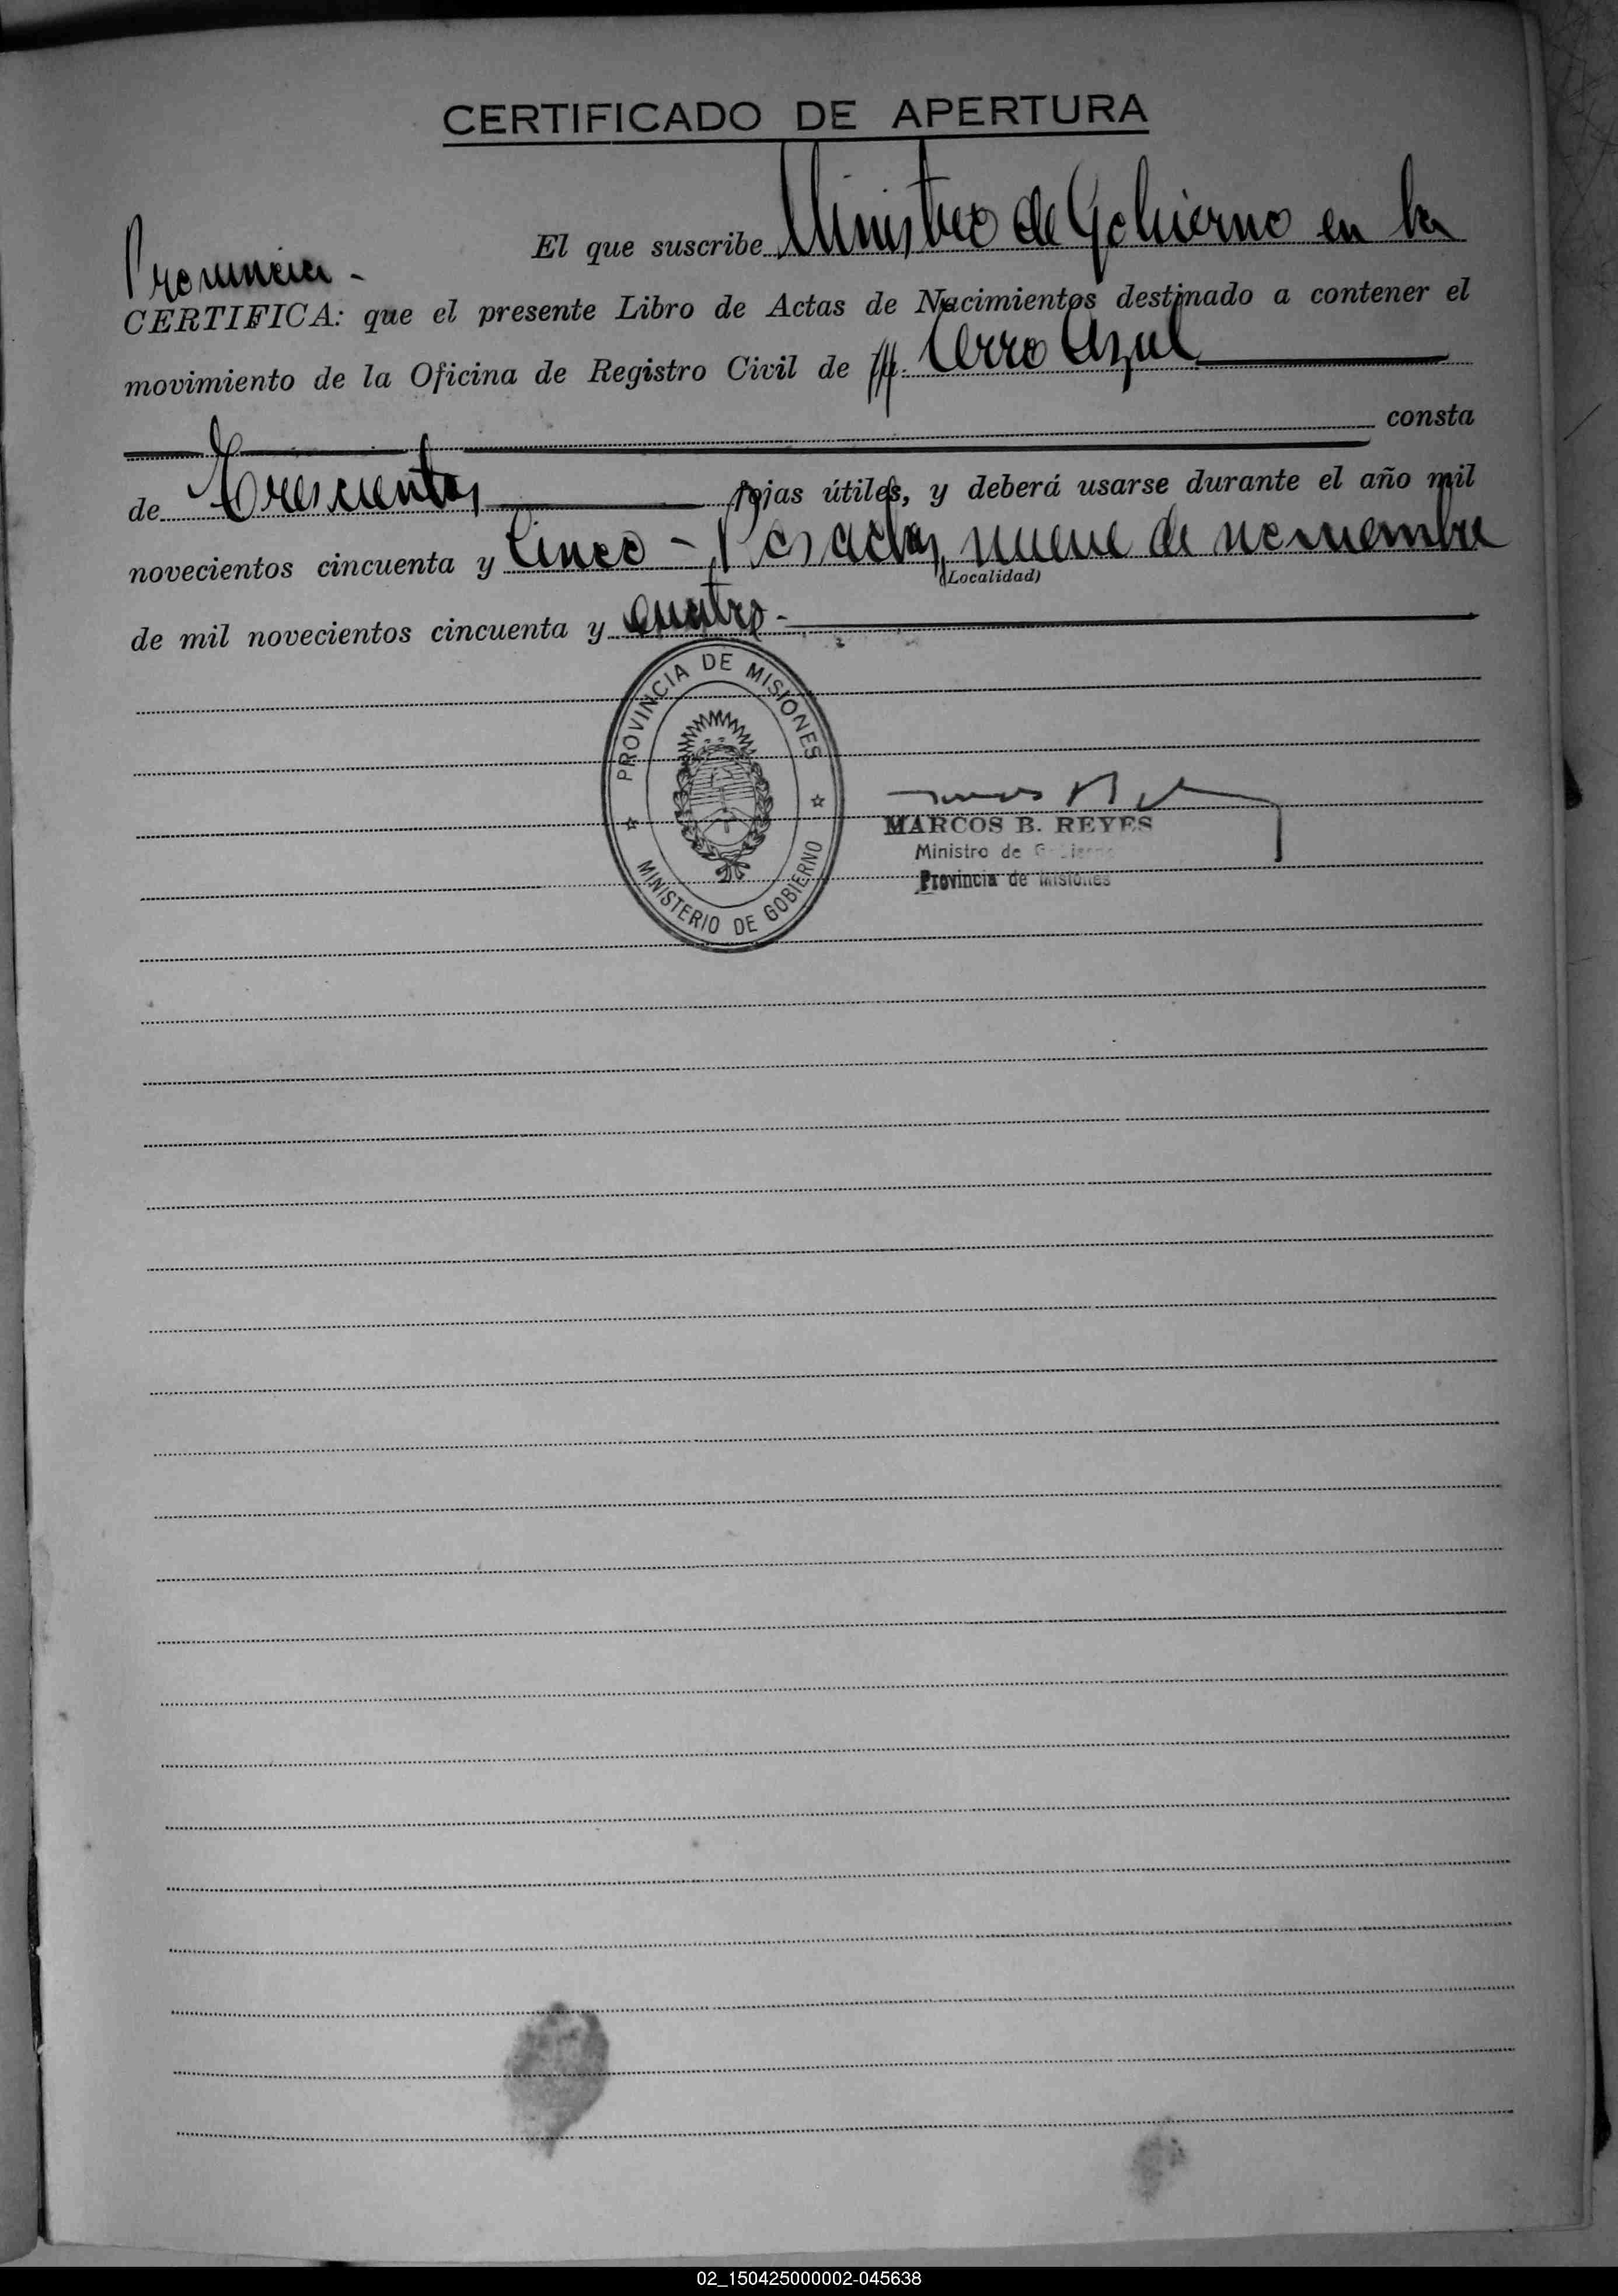 CERTIFICADO DE APERTURA
El que suscribe Ministro de Gobierno en la
Provincia -
CERTIFICA: que el presente Libro de Actas de Nacimientos destinado a contener el
movimiento de la Oficina de Registro Civil de Cerro Azul
consta
de Trescientas fojas útiles, y deberá usarse durante el año mil
novecientos cincuenta y Cinco - Posadas, nueve de noviembre
(Localidad)
de mil novecientos cincuenta y cuatro -
PROVINCIA DE MISIONES
MINISTERIO DE GOBIERNO
MARCOS B. REYES
Ministro de Gobierno
Provincia de Misiones
02_150425000002-045638